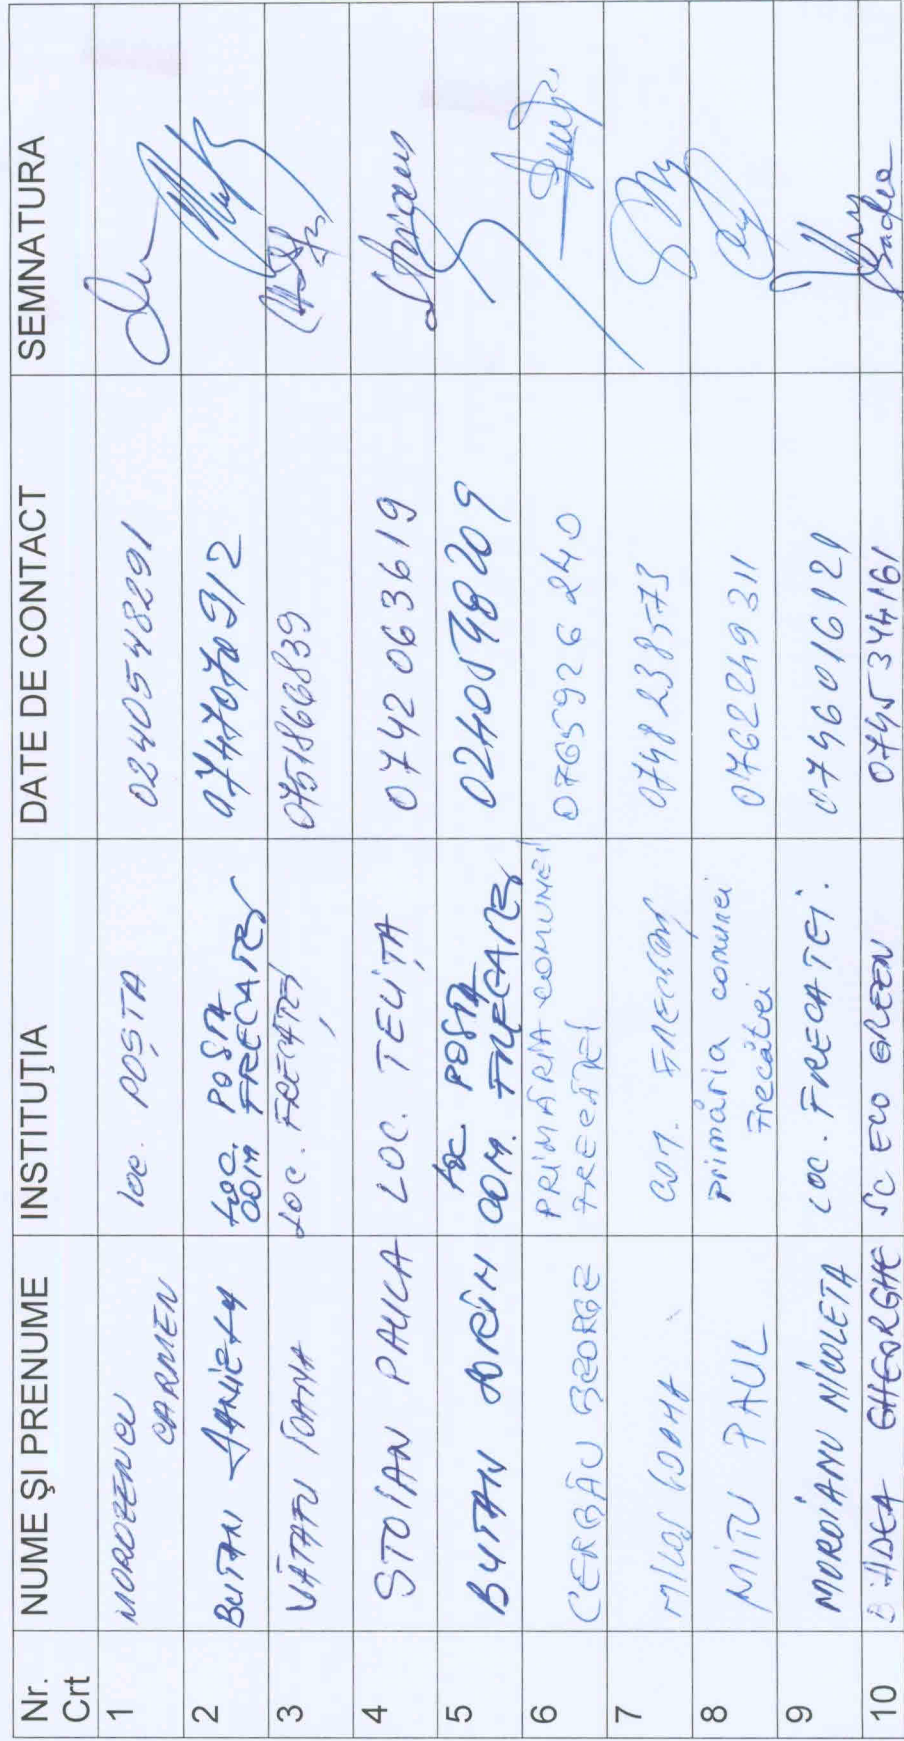 Nr. Crt NUME ŞI PRENUME INSTITUŢIA DATE DE CONTACT SEMNATURA
1 MOROZENCU CARMEN loc. POŞTA 0240548291
2 BUTAN loc. POSTA COM FRECATEI 0747070912
3 VĂTAFU IOANA LOC. FRECĂŢEI 0751866839
4 STOIAN PAULA LOC. TELIŢA 0742063619
5 BUTAN SORIN loc POSTA COM. FRECATEI 0240598209
6 CERBĂU GEORGE PRIMĂRIA COMUNEI FRECĂŢEI 0765926240
7 COM. 0748238573
8 MITU PAUL primăria comunei Frecăţei 0762249311
9 MOROIANU NICOLETA LOC. FRECATEI. 0746016121
10 GHEORGHE SC ECO GREEN 0745344161